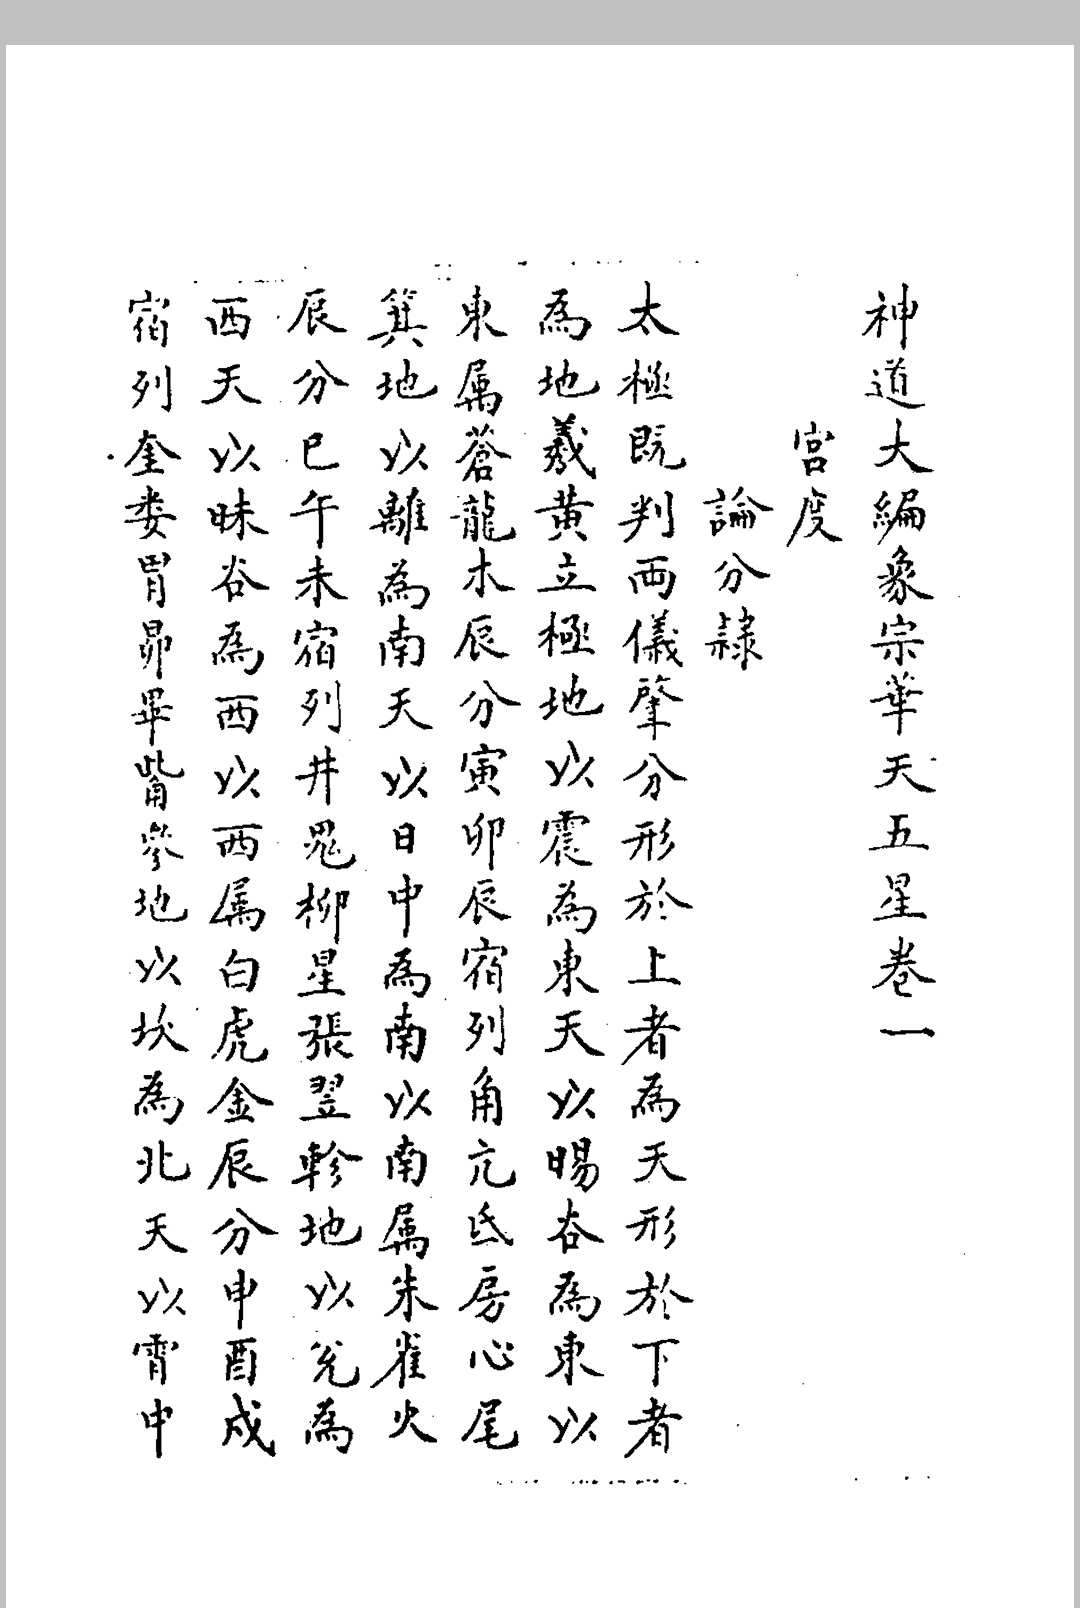 神道大編象宗華天五星卷一
宮度
論分隷
太極既判两儀肇分形於上者為天形於下者
為地羲黄立極地以震為東天以暘谷為東以
東属蒼龍木辰分寅卯辰宿列角亢氐房心尾
箕地以離為南天以日中為南以南属朱雀火
辰分巳午未宿列井鬼柳星張翌軫地以兊為
西天以昧谷為西以西属白虎金辰分申酉戌
宿列奎娄胃昴畢觜參地以坎為北天以宵中